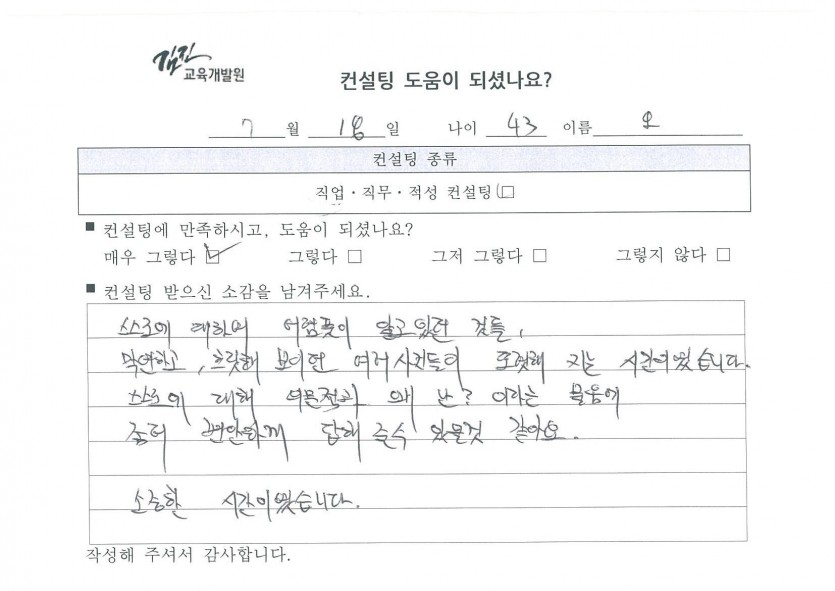 김진
교육개발원
컨설팅 도움이 되셨나요?
7 월 18 일 나이 43 이름 오
컨설팅 종류
직업 · 직무 · 적성 컨설팅(□
■ 컨설팅에 만족하시고, 도움이 되셨나요?
매우 그렇다 ☑ 그렇다 □ 그저 그렇다 □ 그렇지 않다 □
■ 컨설팅 받으신 소감을 남겨주세요.
스스로에 대하여 어렴풋이 알고있던 것들,
막연하고, 흐릿해 보이던 여러 사건들이 또렷해 지는 시간이었습니다.
스스로에 대해 의문점과 왜 난? 이라는 물음에
좀더 편안하게 답해 줄수 있을것 같아요.
소중한 시간이었습니다.
작성해 주셔서 감사합니다.